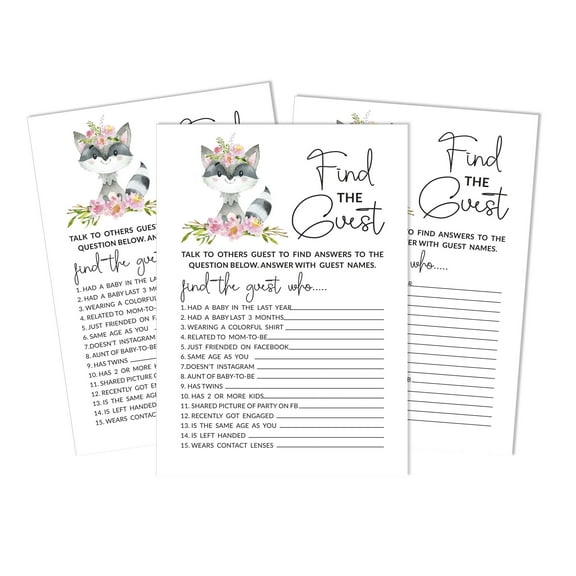 Find
THE
Guest
TALK TO OTHERS GUEST TO FIND ANSWERS TO THE
QUESTION BELOW. ANSWER WITH GUEST NAMES.
find the guest who.....
1. HAD A BABY IN THE LAST YEAR
2. HAD A BABY LAST 3 MONTHS
3. WEARING A COLORFUL SHIRT
4. RELATED TO MOM-TO-BE
5. JUST FRIENDED ON FACEBOOK
6. SAME AGE AS YOU
7.DOESN'T INSTAGRAM
8. AUNT OF BABY-TO-BE
9. HAS TWINS
10. HAS 2 OR MORE KIDS
11. SHARED PICTURE OF PARTY ON FB
12. RECENTLY GOT ENGAGED
13. IS THE SAME AGE AS YOU
14. IS LEFT HANDED
15. WEARS CONTACT LENSES
Find
TALK TO OTHERS GUEST
QUESTION BELOW. ANSW
find the guest
1. HAD A BABY IN THE LAST
2. HAD A BABY LAST 3 MONT
3. WEARING A COLORFUL
4. RELATED TO MOM-TO-BE
5. JUST FRIENDED ON FACE
6. SAME AGE AS YOU
7.DOESN'T INSTAGRAM
8. AUNT OF BABY-TO-BE
9. HAS TWINS
10. HAS 2 OR MORE KIDS
11. SHARED PICTURE OF
12. RECENTLY GOT ENGAG
13. IS THE SAME AGE AS
14. IS LEFT HANDED
15. WEARS CONTACT
Find
THE
Guest
TO FIND ANSWERS TO THE
WER WITH GUEST NAMES.
who.....